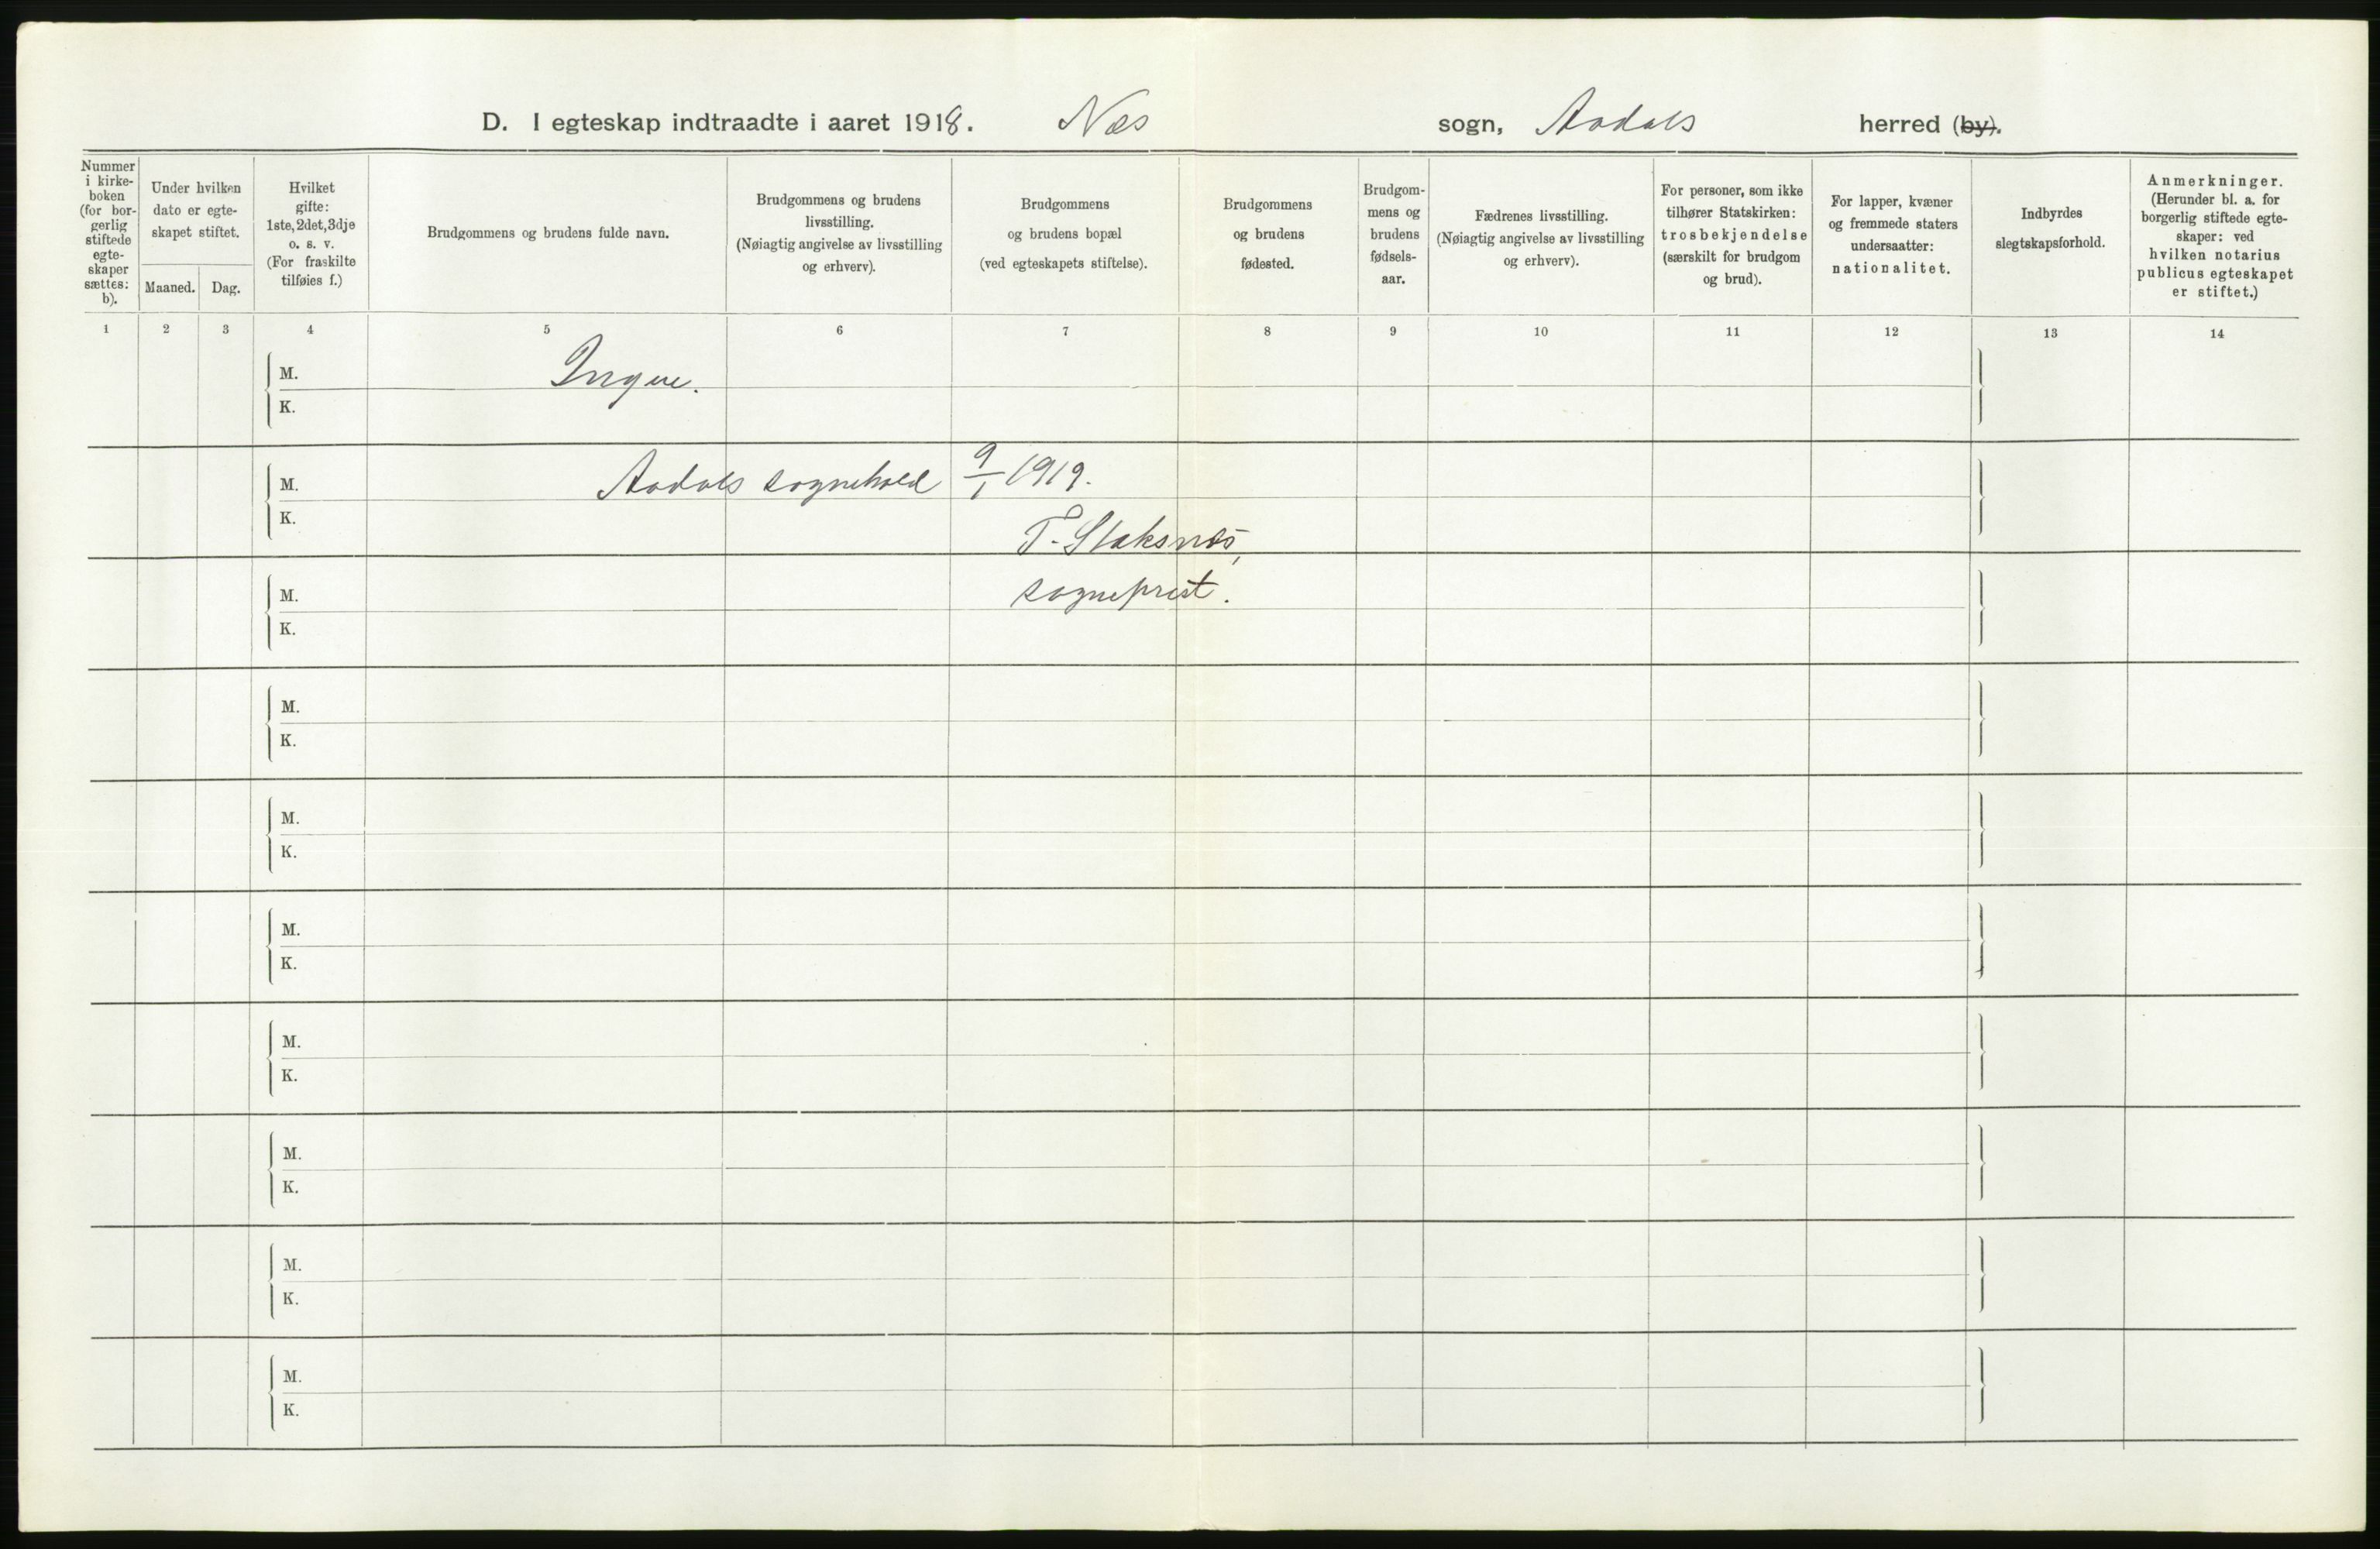 D. I egteskap indtraadte i aaret 1918. Næs sogn, Aadals herred (by).
Nummer i kirke- boken (for bor- gerlig stiftede egte- skaper sættes: b).
Under hvilken dato er egte- skapet stiftet.
Maaned. Dag.
Hvilket gifte: 1ste, 2det, 3dje o. s. v. (For fraskilte tilføies f.)
Brudgommens og brudens fulde navn.
Brudgommens og brudens livsstilling. (Nøiagtig angivelse av livsstilling og erhverv).
Brudgommens og brudens bopæl (ved egteskapets stiftelse).
Brudgommens og brudens fødested.
Brudgom- mens og brudens fødsels- aar.
Fædrenes livsstilling. (Nøiagtig angivelse av livsstilling og erhverv).
For personer, som ikke tilhører Statskirken: trosbekjendelse (særskilt for brudgom og brud).
For lapper, kvæner og fremmede staters undersaatter: nationalitet.
Indbyrdes slegtskapsforhold.
Anmerkninger. (Herunder bl. a. for borgerlig stiftede egte- skaper: ved hvilken notarius publicus egteskapet er stiftet.)
1 2 3 4 5 6 7 8 9 10 11 12 13 14
M. Ingen.
K.
M. Aadals sognekald 9/1 1919.
K.
T. Staksnæs,
M. sogneprest.
K.
M.
K.
M.
K.
M.
K.
M.
K.
M.
K.
M.
K.
M.
K.